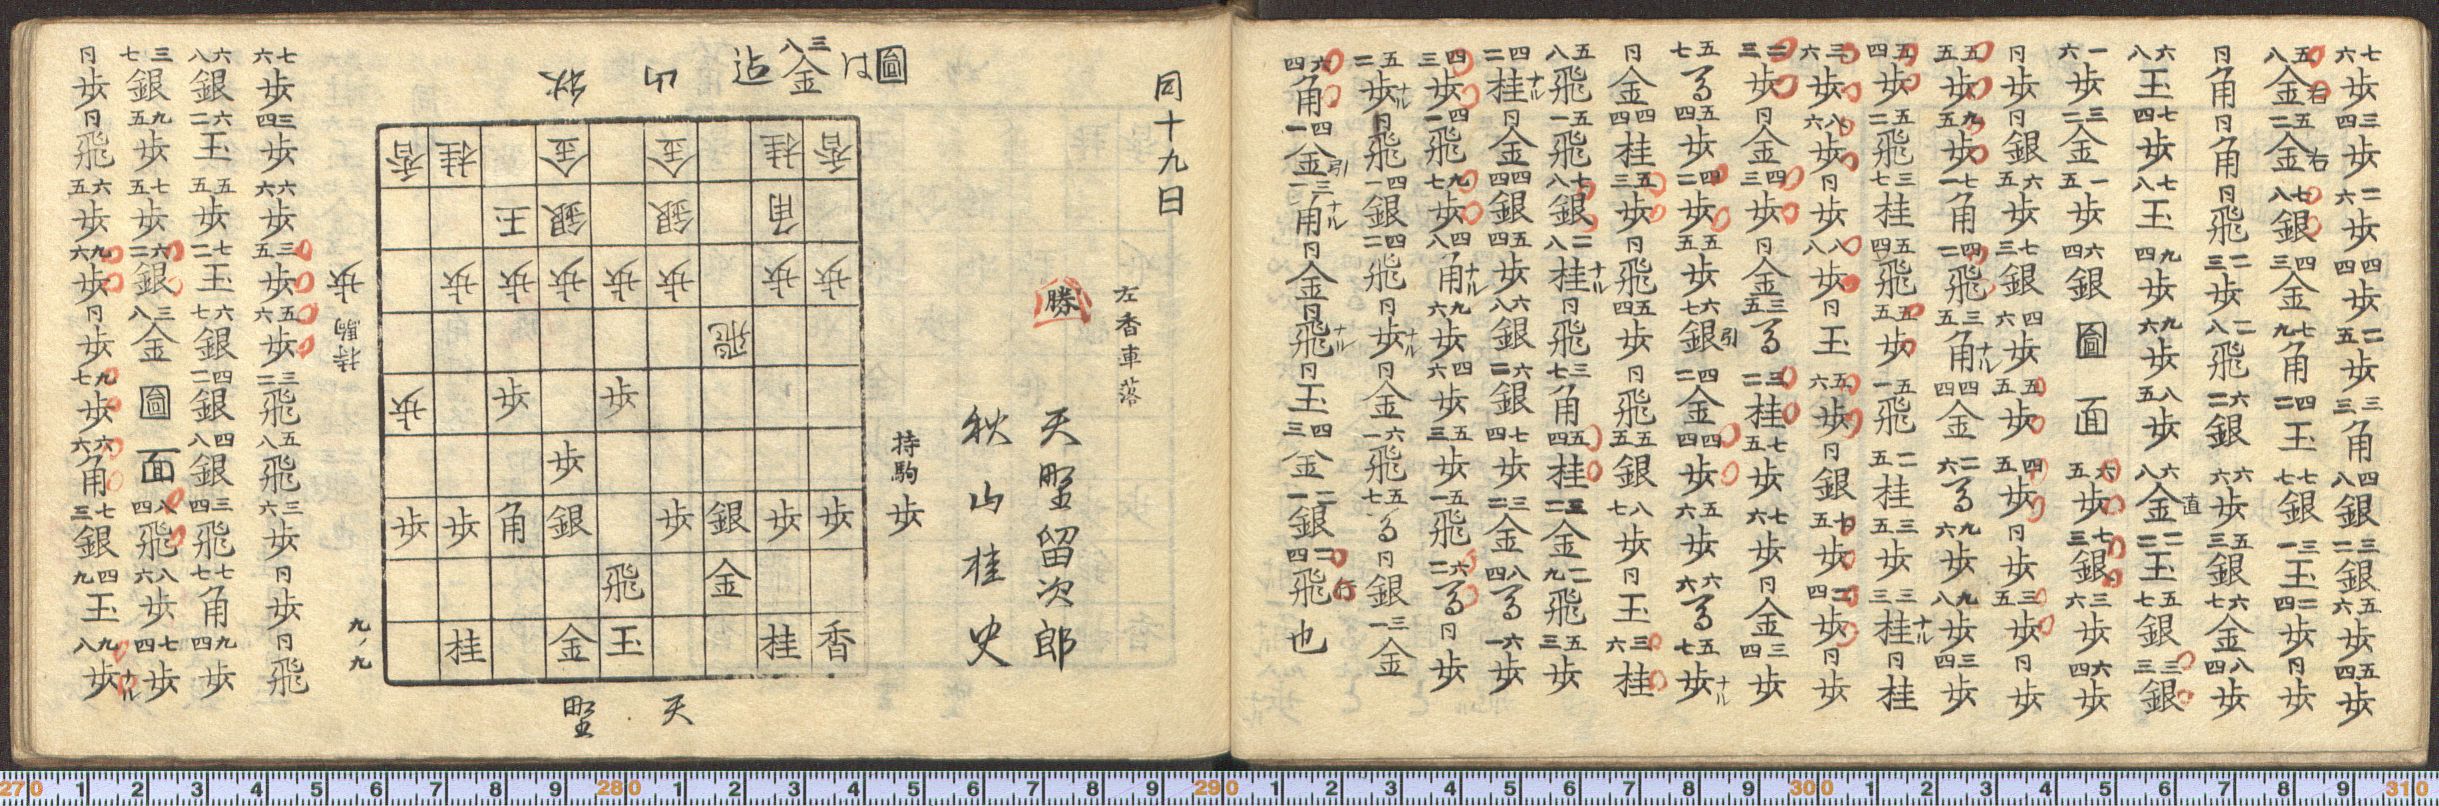 七六歩 三四歩 二六歩 四四歩 二五歩 三三角 四八銀 三二銀 五六歩 五四歩
五八金右 五二金右 七八銀 四三金 七九角 四二玉 七七銀 三一玉 二四歩 同歩
同角 同角 同飛 二三歩 二八飛 六二銀 六六歩 五三銀 六七金 八四歩
六八玉 七四歩 七八玉 九四歩 九六歩 八五歩 六八金直 二二玉 五七銀 三三銀
一六歩 三二金 一五歩 六四銀 圖面 六五歩 七三銀 三六歩 六四歩
同歩 同銀 六五歩 七三銀 四六歩 五五歩 四五歩 同歩 三五歩 同歩
五五歩 九五歩 七一角 四二飛 三五角ナル 四四金 二六馬 九六歩 九八歩 三四歩
五四歩 五二飛 三七桂 五四飛 五五歩 五一飛 二五桂 三五歩 三三桂ナル 同桂
三六歩 八六歩 同歩 八八歩 同玉 五六歩 同銀 七五歩 二四歩 同歩
二三歩 同金 四三歩 同金 三五馬 三二桂 七五歩 七六歩 同金 三四歩
五七馬 五四歩 四二歩 五五歩 六七銀引 四二金 四四歩 五六歩 六六馬 五七歩ナル
同金 四四桂 五三歩 同飛 五四歩 同飛 五五銀 八七歩 同玉 三六桂
五八飛 五一飛 七八銀 二八桂ナル 同飛 三七角 五四桂 三二金 二九飛 五三歩
四二桂ナル 同金 四四銀 五四歩 六八銀 六二銀 七四歩 三二金 八四馬 六一歩
四三歩 四一飛 九七歩 四八角ナル 九六歩 四六歩 五三歩 五一飛 六二馬 同歩
五二歩ナル 同飛 四一銀 四二飛 同歩ナル 同金 六一飛 五七馬 同銀 三一金
六四角 四一金引 三一角ナル 同金 同飛ナル 同玉 四三金 二一銀 二四飛行也
同十九日
左香車落
勝 天野留次郎
秋山桂史
持駒 歩
圖は三八金迄
秋山
香桂金金桂香
玉銀銀角
歩歩歩歩歩歩歩
飛
歩歩歩
歩
歩歩角銀歩銀歩歩
飛金
桂金玉桂香
天野
持駒 歩
九ノ九
七六歩 三四歩 六六歩 三五歩 五六歩 三二飛 五八飛 三六歩 同歩 同飛
六八銀 六二玉 五五歩 七二玉 六七銀 四二銀 四八銀 三四飛 七七角 九四歩
三七銀 九五歩 七五歩 六二銀 三八金 圖面 八四飛 八六歩 七四歩
同歩 同飛 六五歩 九六歩 同歩 九七歩 六六角 七三銀 四九玉 九八歩ナル